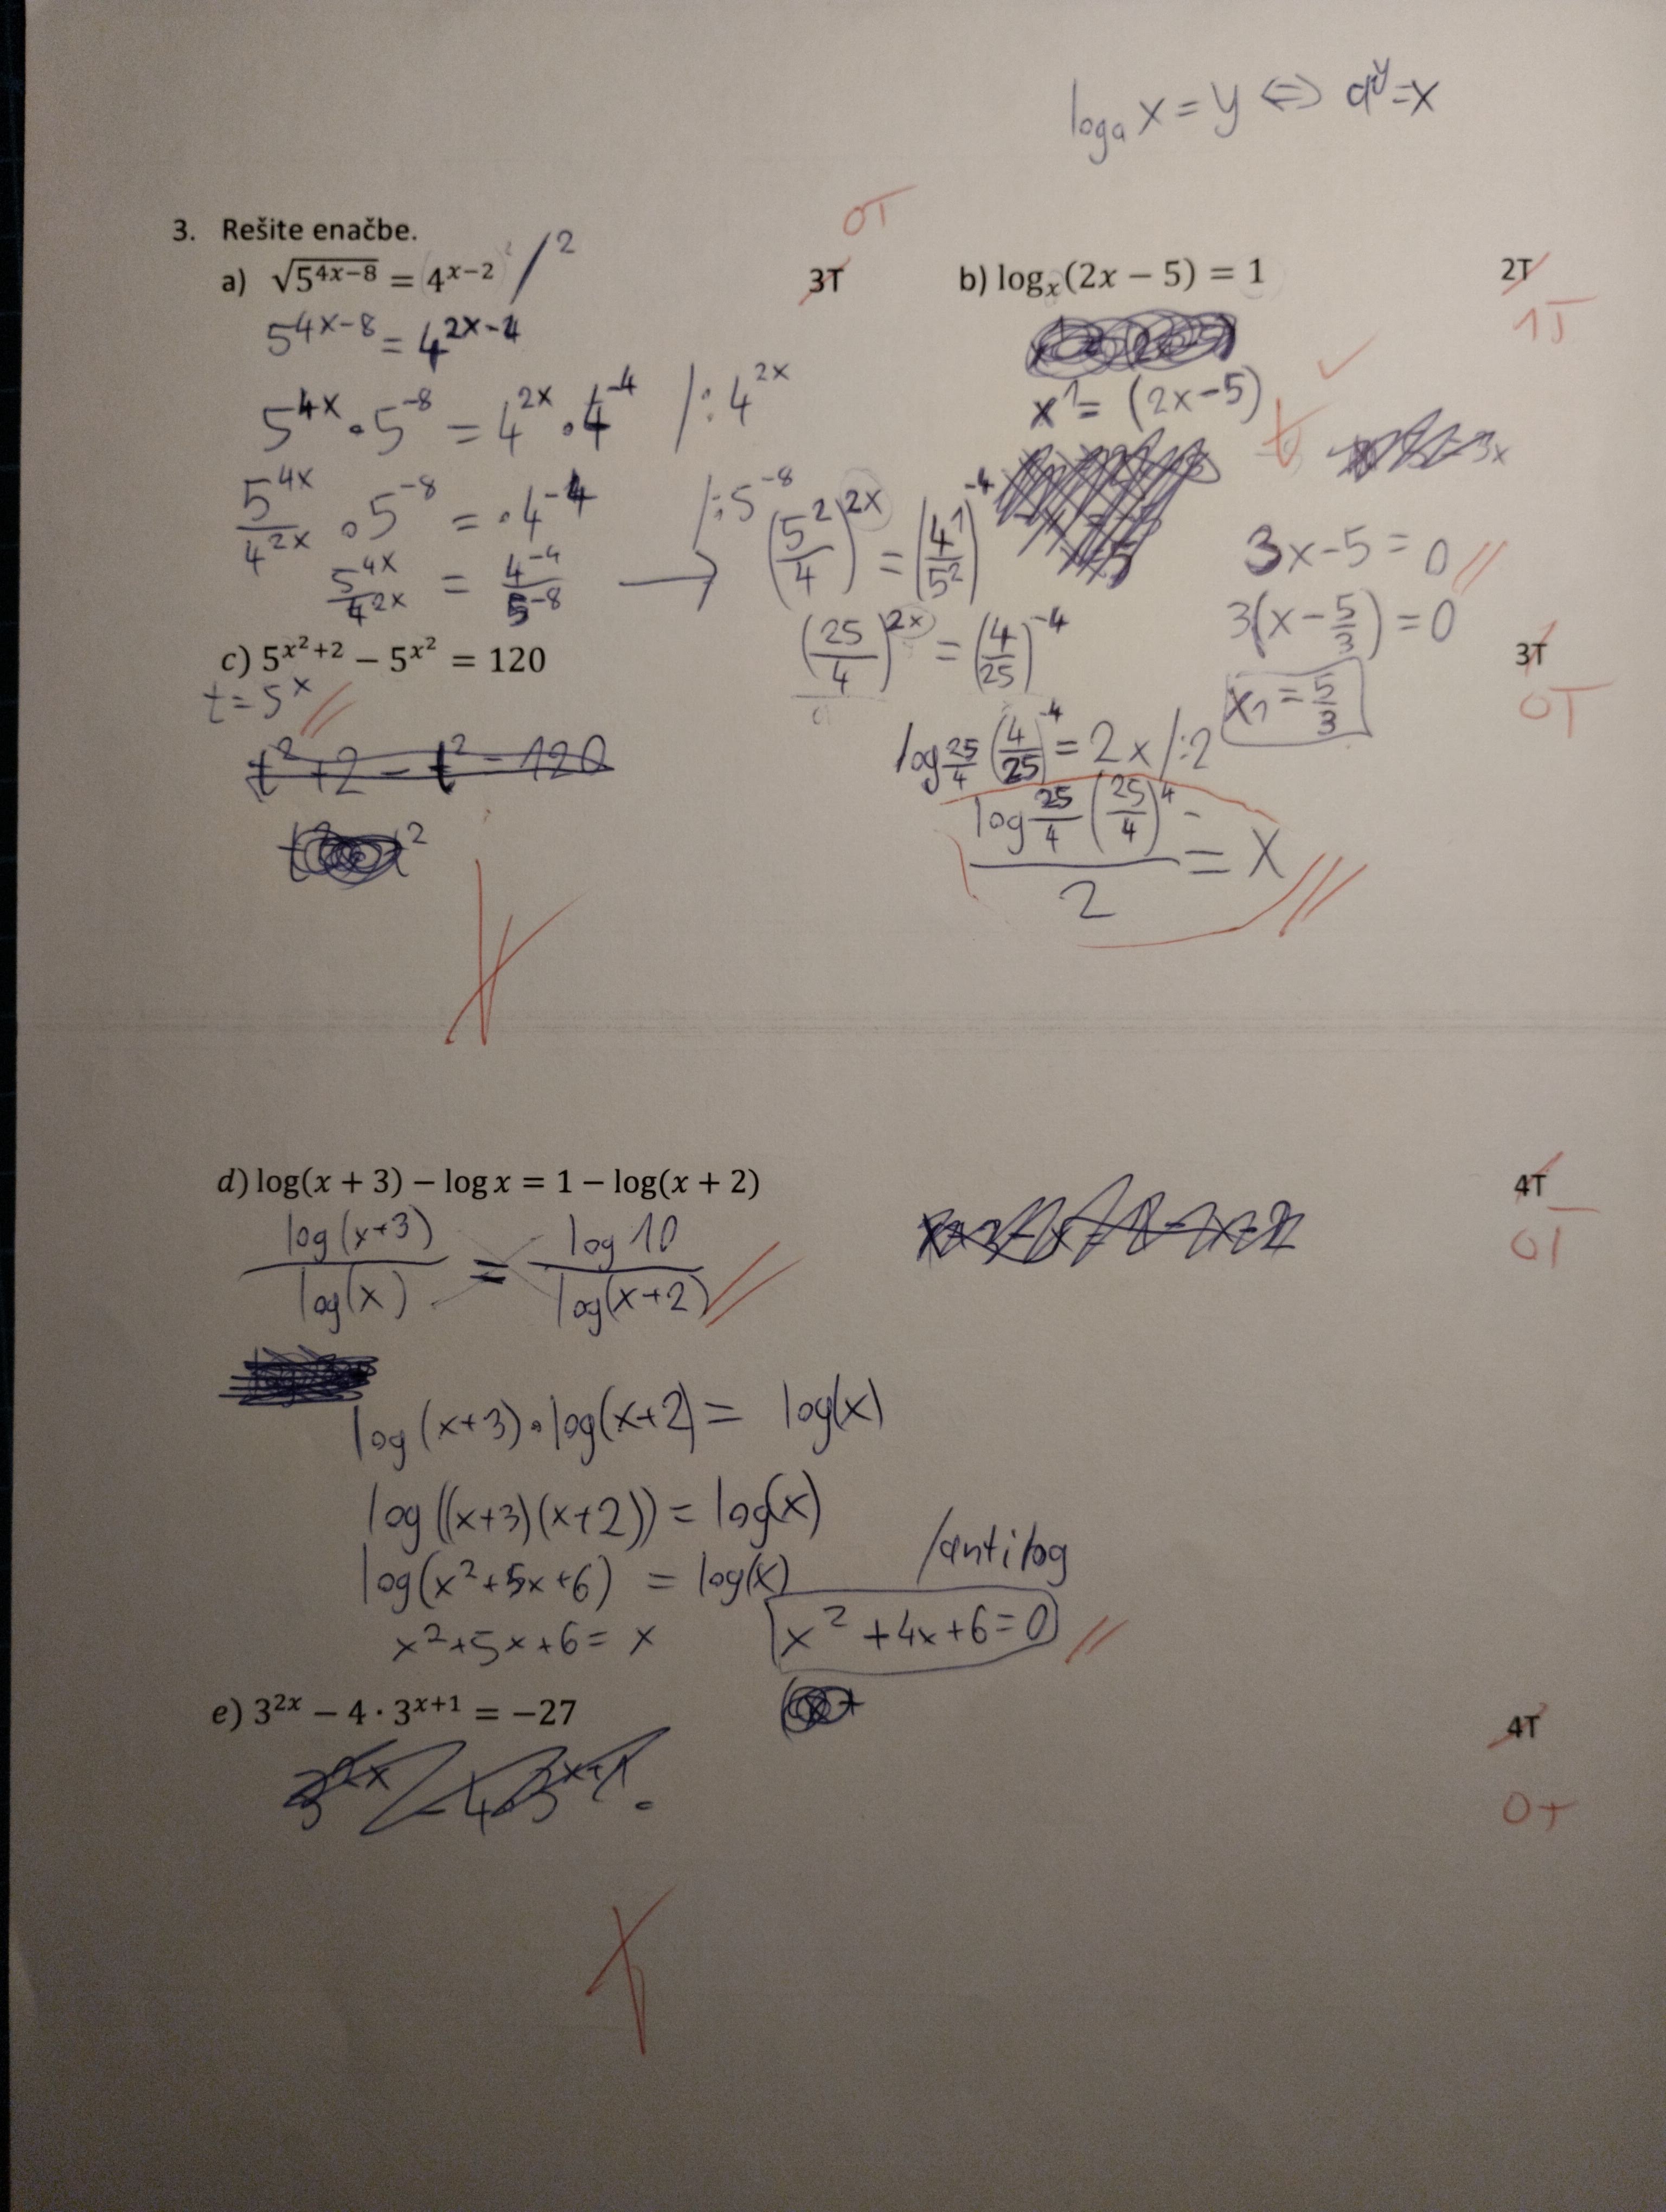 logₐ x = y ⇔ a^y = x
0T
3. Rešite enačbe.
a) √(5^(4x−8)) = 4^(x−2) /²
3T
b) logₓ(2x − 5) = 1
2T
1T
5^(4x−8) = 4^(2x−4)
x¹ = (2x−5)
5^(4x) · 5^(−8) = 4^(2x) · 4^(−4) /:4^(2x)
5^(4x)/4^(2x) · 5^(−8) = · 4^(−4) /:5^(−8)
5^(4x)/4^(2x) = 4^(−4)/5^(−8) → (5²/4)^(2x) = (4¹/5²)^(−4)
3x−5 = 0
(25/4)^(2x) = (4/25)^(−4)
3(x − 5/3) = 0
x₁ = 5/3
log_(25/4) (4/25)^(−4) = 2x /:2
(log_(25/4) (25/4)^4)/2 = x
c) 5^(x²+2) − 5^(x²) = 120
3T
0T
t = 5^x
t² + 2 − t² = 120
d) log(x + 3) − log x = 1 − log(x + 2)
4T
0T
log(x+3)/log(x) = log 10/log(x+2)
log(x+3) · log(x+2) = log(x)
log((x+3)(x+2)) = log(x)
log(x²+5x+6) = log(x) /antilog
x²+5x+6 = x
x²+4x+6=0
e) 3^(2x) − 4 · 3^(x+1) = −27
4T
0T
3^(2x) − 4·3^(x+1) =